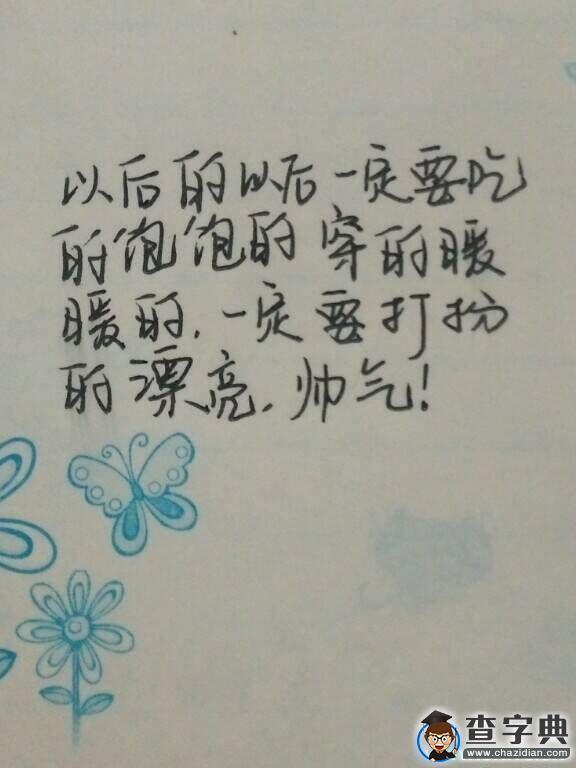 以后的以后一定要吃
的饱饱的穿的暖
暖的.一定要打扮
的漂亮.帅气!
查字典
www.chazidian.com